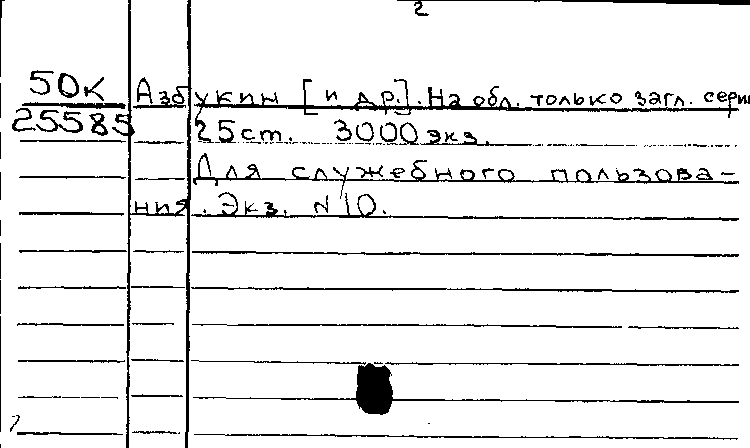 2
50К Азбукин [и др.]. На обл. только загл. серии
25585 25 ст. 3000 экз.
Для служебного пользова-
ния. Экз. N 10.